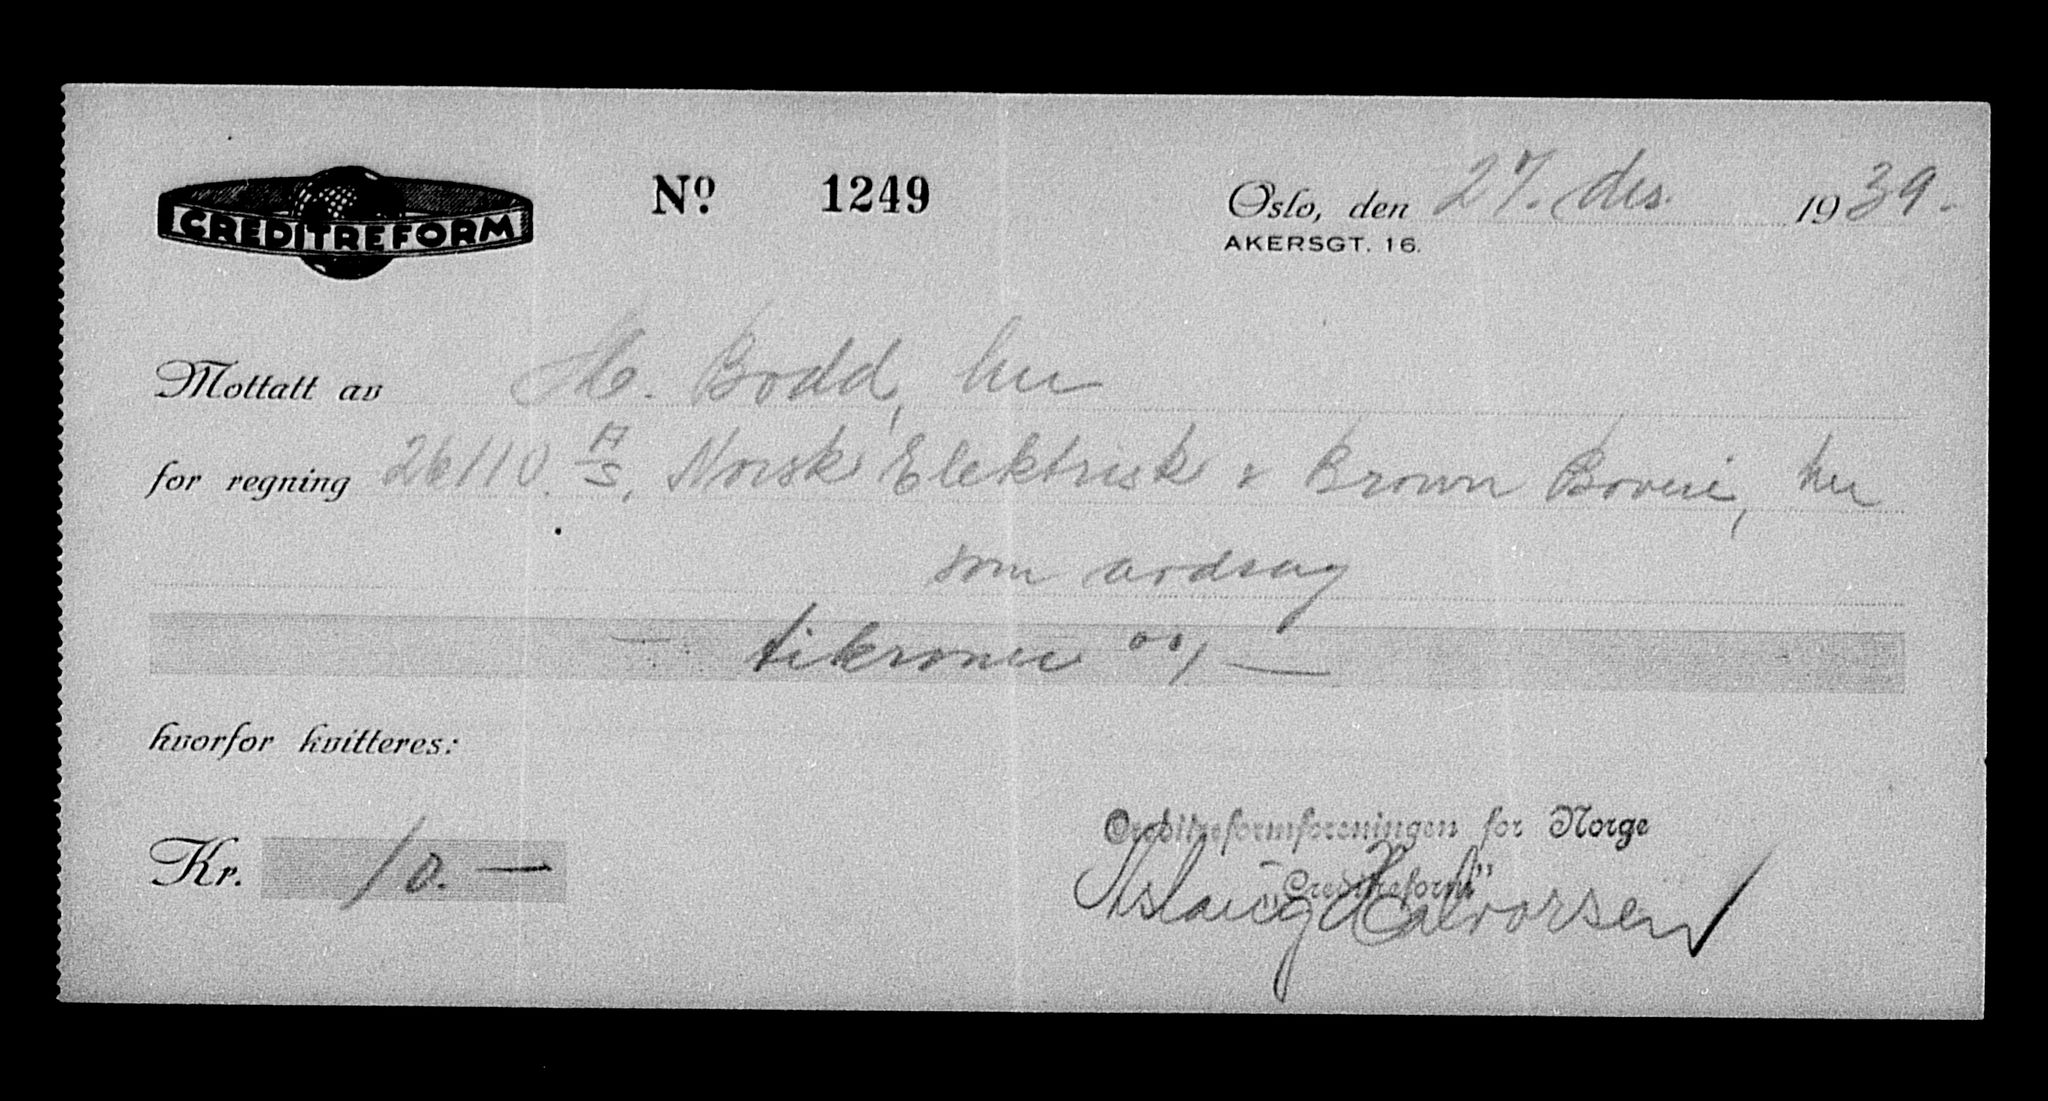 CREDITREFORM
Nº 1249
Oslo, den 27. des. 1939.
AKERSGT. 16.
Mottatt av M. Bodd, her
for regning 26110. A/S. Norsk Elektrisk & Brown Boveri, her
som avdrag
— tikroner 00/ —
hvorfor kvitteres:
Kr. 10. —
Creditreformforeningen for Norge
„Creditreform”
Aslaug Halvorsen